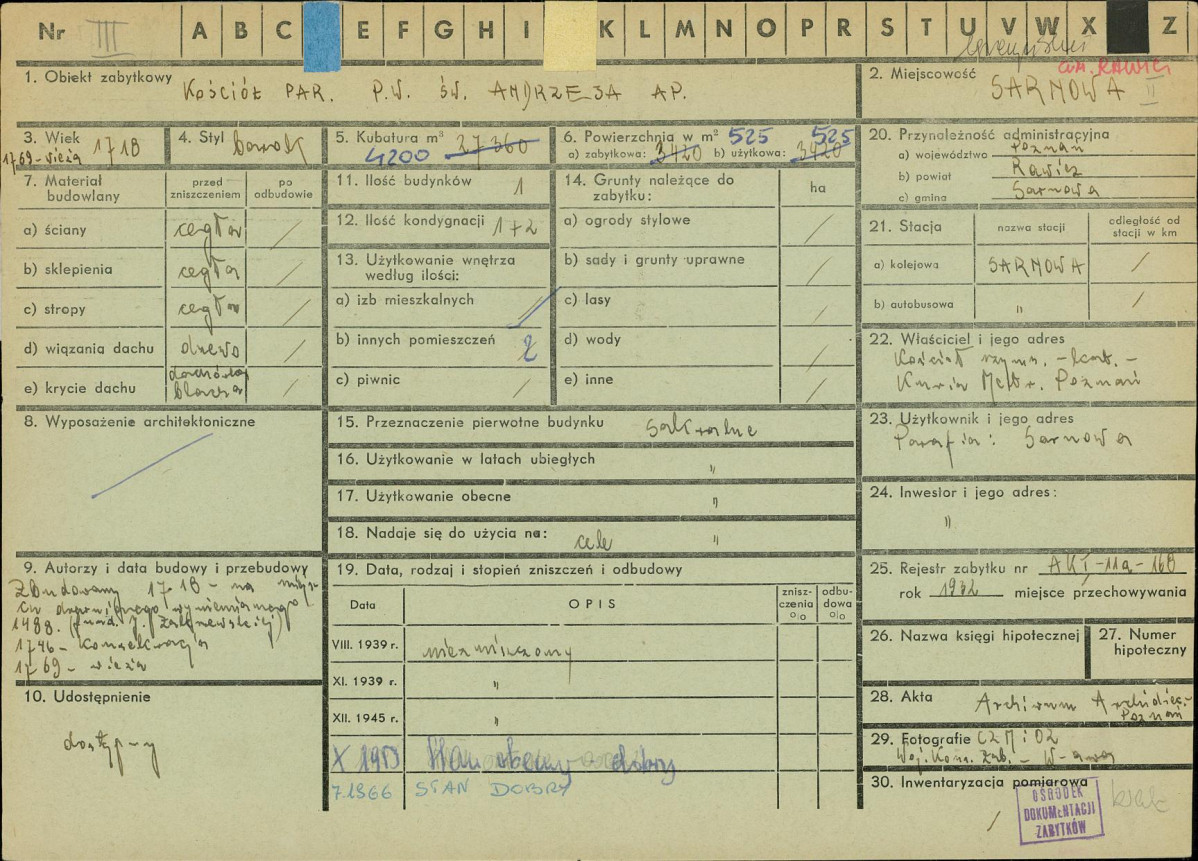 Nr III A B C E F G H I K L M N O P R S T U V W X Z
1. Obiekt zabytkowy
KOŚCIÓŁ PAR. P.W. ŚW. ANDRZEJA AP.
2. Miejscowość
GM. RAWICZ
SARNOWA II
3. Wiek 1718
1769 - wieża
4. Styl barok
5. Kubatura m³ 27360
4200
6. Powierzchnia w m² 525 525
a) zabytkowa: 3420 b) użytkowa: 3420
20. Przynależność administracyjna
a) województwo Poznań
b) powiat Rawicz
c) gmina Sarnowa
7. Materiał budowlany
przed zniszczeniem
po odbudowie
a) ściany cegła /
b) sklepienia cegła /
c) stropy cegła /
d) wiązania dachu drewno /
e) krycie dachu dachówka blacha /
11. Ilość budynków 1
12. Ilość kondygnacji 1+2
13. Użytkowanie wnętrza według ilości:
a) izb mieszkalnych /
b) innych pomieszczeń 2
c) piwnic /
14. Grunty należące do zabytku:
ha
a) ogrody stylowe /
b) sady i grunty uprawne /
c) lasy /
d) wody /
e) inne /
21. Stacja
nazwa stacji
odległość od stacji w km
a) kolejowa SARNOWA /
b) autobusowa " /
22. Właściciel i jego adres
Kościół rzym. - kat. -
Kuria Metr. Poznań
8. Wyposażenie architektoniczne
15. Przeznaczenie pierwotne budynku sakralne
16. Użytkowanie w latach ubiegłych "
17. Użytkowanie obecne "
18. Nadaje się do użycia na: cele "
23. Użytkownik i jego adres
Parafia: Sarnowa
24. Inwestor i jego adres:
"
9. Autorzy i data budowy i przebudowy
Zbudowany 1718 - na miejs-
cu drewnianego wymienianego
1488.
1746 - konsekracja
1769 - wieża
10. Udostępnienie
dostępny
19. Data, rodzaj i stopień zniszczeń i odbudowy
Data
OPIS
znisz-czenia %
odbu-dowa %
VIII. 1939 r. niezniszczony
XI. 1939 r. "
XII. 1945 r. "
X 1959 Stan obecny dobry
7.1966 STAN DOBRY
25. Rejestr zabytku nr AKI-11a-168
rok 1932 miejsce przechowywania
26. Nazwa księgi hipotecznej
27. Numer hipoteczny
28. Akta Archiwum Archidiec.
Poznań
29. Fotografie CZM i OZ
Woj. Kons. Zab. - W-awa
30. Inwentaryzacja pomiarowa
/
OŚRODEK
DOKUMENTACJI
ZABYTKÓW